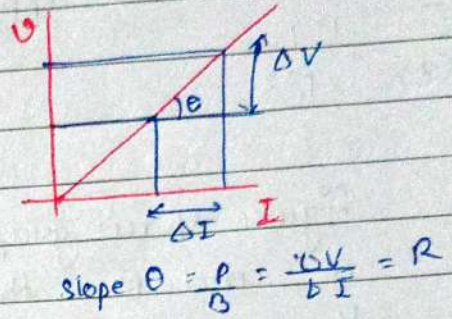 V
ΔV
θ
ΔI
I
slope θ = P/B = ΔV/ΔI = R